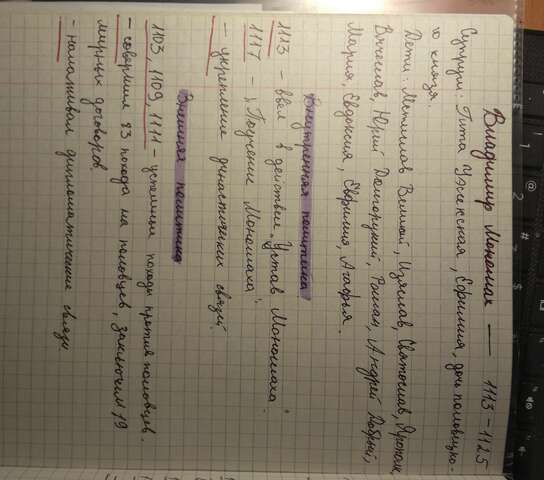 Владимир Мономах — 1113-1125
Супруги: Гита Уэссекская, Ефимия, дочь половецко-
го князя.
Дети: Мстислав Великий, Изяслав, Святослав, Ярополк,
Вячеслав, Юрий Долгорукий, Роман, Андрей Добрый,
Мария, Евдоксия, Ефимия, Агафья.
Внутренняя политика
1113 - ввел в действие „Устав Мономаха".
1117 - „Поучение Мономаха".
- укрепление династических связей.
Внешняя политика
1103, 1109, 1111 - успешные походы против половцев.
- совершил 83 похода на половцев, заключил 19
мирных договоров
- налаживал дипломатические связи